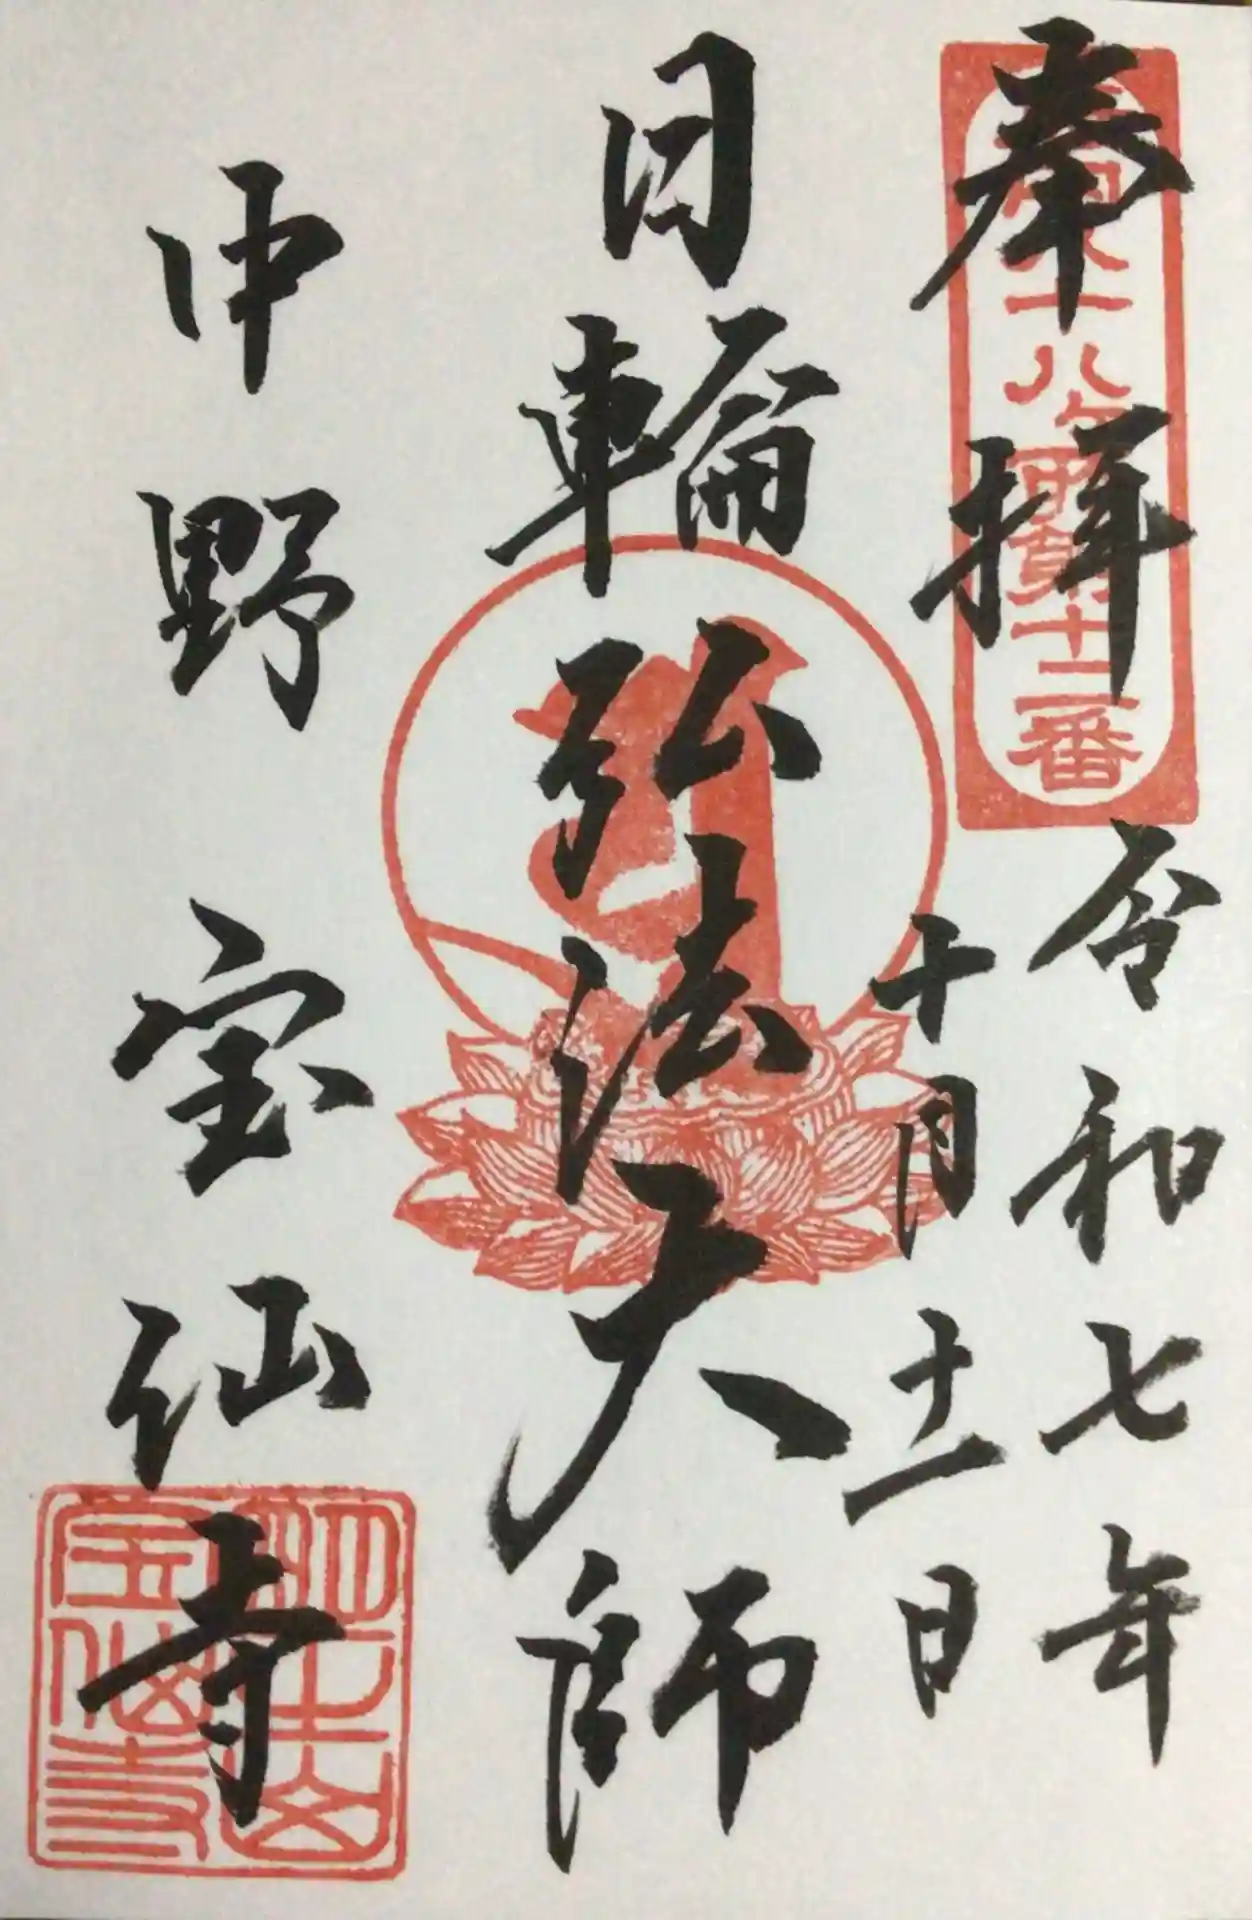 奉拝
令和七年
十月十二日
日輪弘法大師
中野 宝仙寺
八ヶ所第十二番
宝仙寺